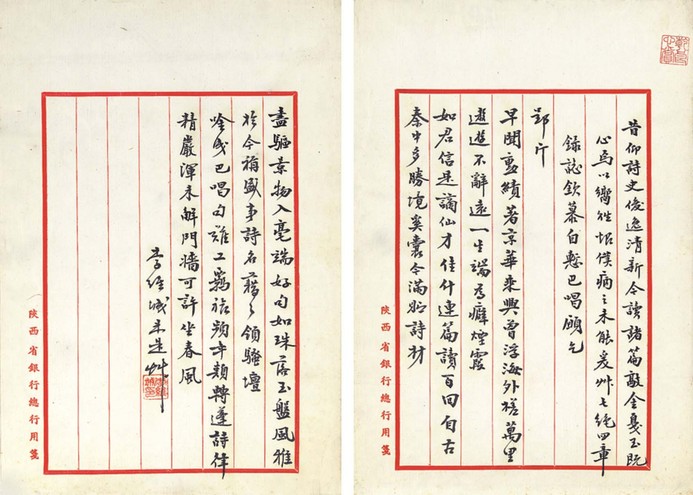 昔仰詩史俊逸清新今讀諸篇敲金戛玉既
心焉以嚮往僕病之未能爰艸七絕四章
錄誌欽慕自慙巴唱顧乞
郢斤
早聞勛績著京華乘興曾浮海外槎萬里
遨遊不辭遠一生端為癖煙霞
如君信是謫仙才佳什連篇讀百回自古
秦中多勝境奚囊今滿貯詩材
陝西省銀行總行用箋
盡驅景物入毫端好句如珠落玉盤風雅
於今稱盛事詩名藉〻領騷壇
吟成巴唱句難工羈旅頻年類轉蓬詩律
精嚴渾未解門牆可許坐春風
李經誠未是艸
陝西省銀行總行用箋